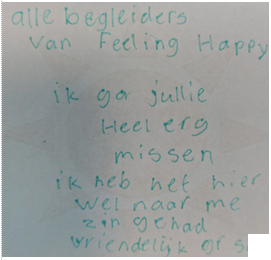 alle begleiders
van Feeling Happy
ik ga jullie
Heel erg
missen
ik heb het hier
wel naar me
zin gehad
vriendelijk